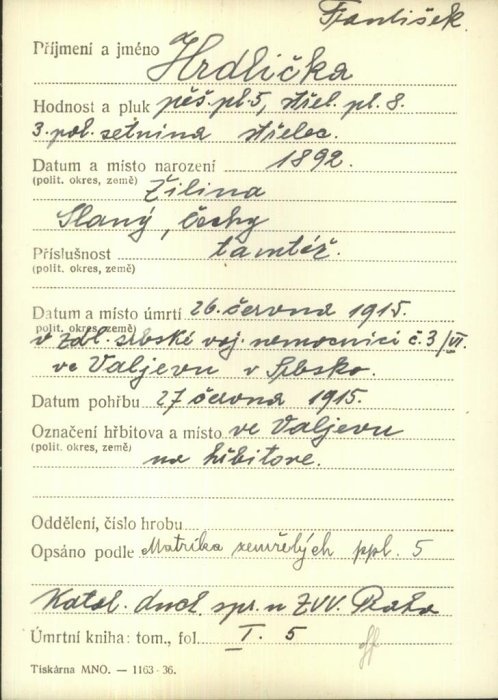 František
Příjmení a jméno Hrdlička
Hodnost a pluk pěš. pl. 5, střel. pl. 8.
3. pol. setnina střelec.
Datum a místo narození 1892.
(polit. okres, země) Žilina
Slaný, Čechy
Příslušnost tamtéž.
(polit. okres, země)
Datum a místo úmrtí 26. června 1915.
polit. okres, země)
v zdl. srbské voj. nemocnici č. 3/VI.
ve Valjevu v Srbsko.
Datum pohřbu 27 června 1915.
Označení hřbitova a místo ve Valjevu
(polit. okres, země)
na hřbitove.
Oddělení, číslo hrobu
Opsáno podle Matrika zemřelých ppl. 5
Katol. duch. spr. u ZVV. Praha
Úmrtní kniha: tom., fol. I. 5
Tiskárna MNO. — 1163-36.